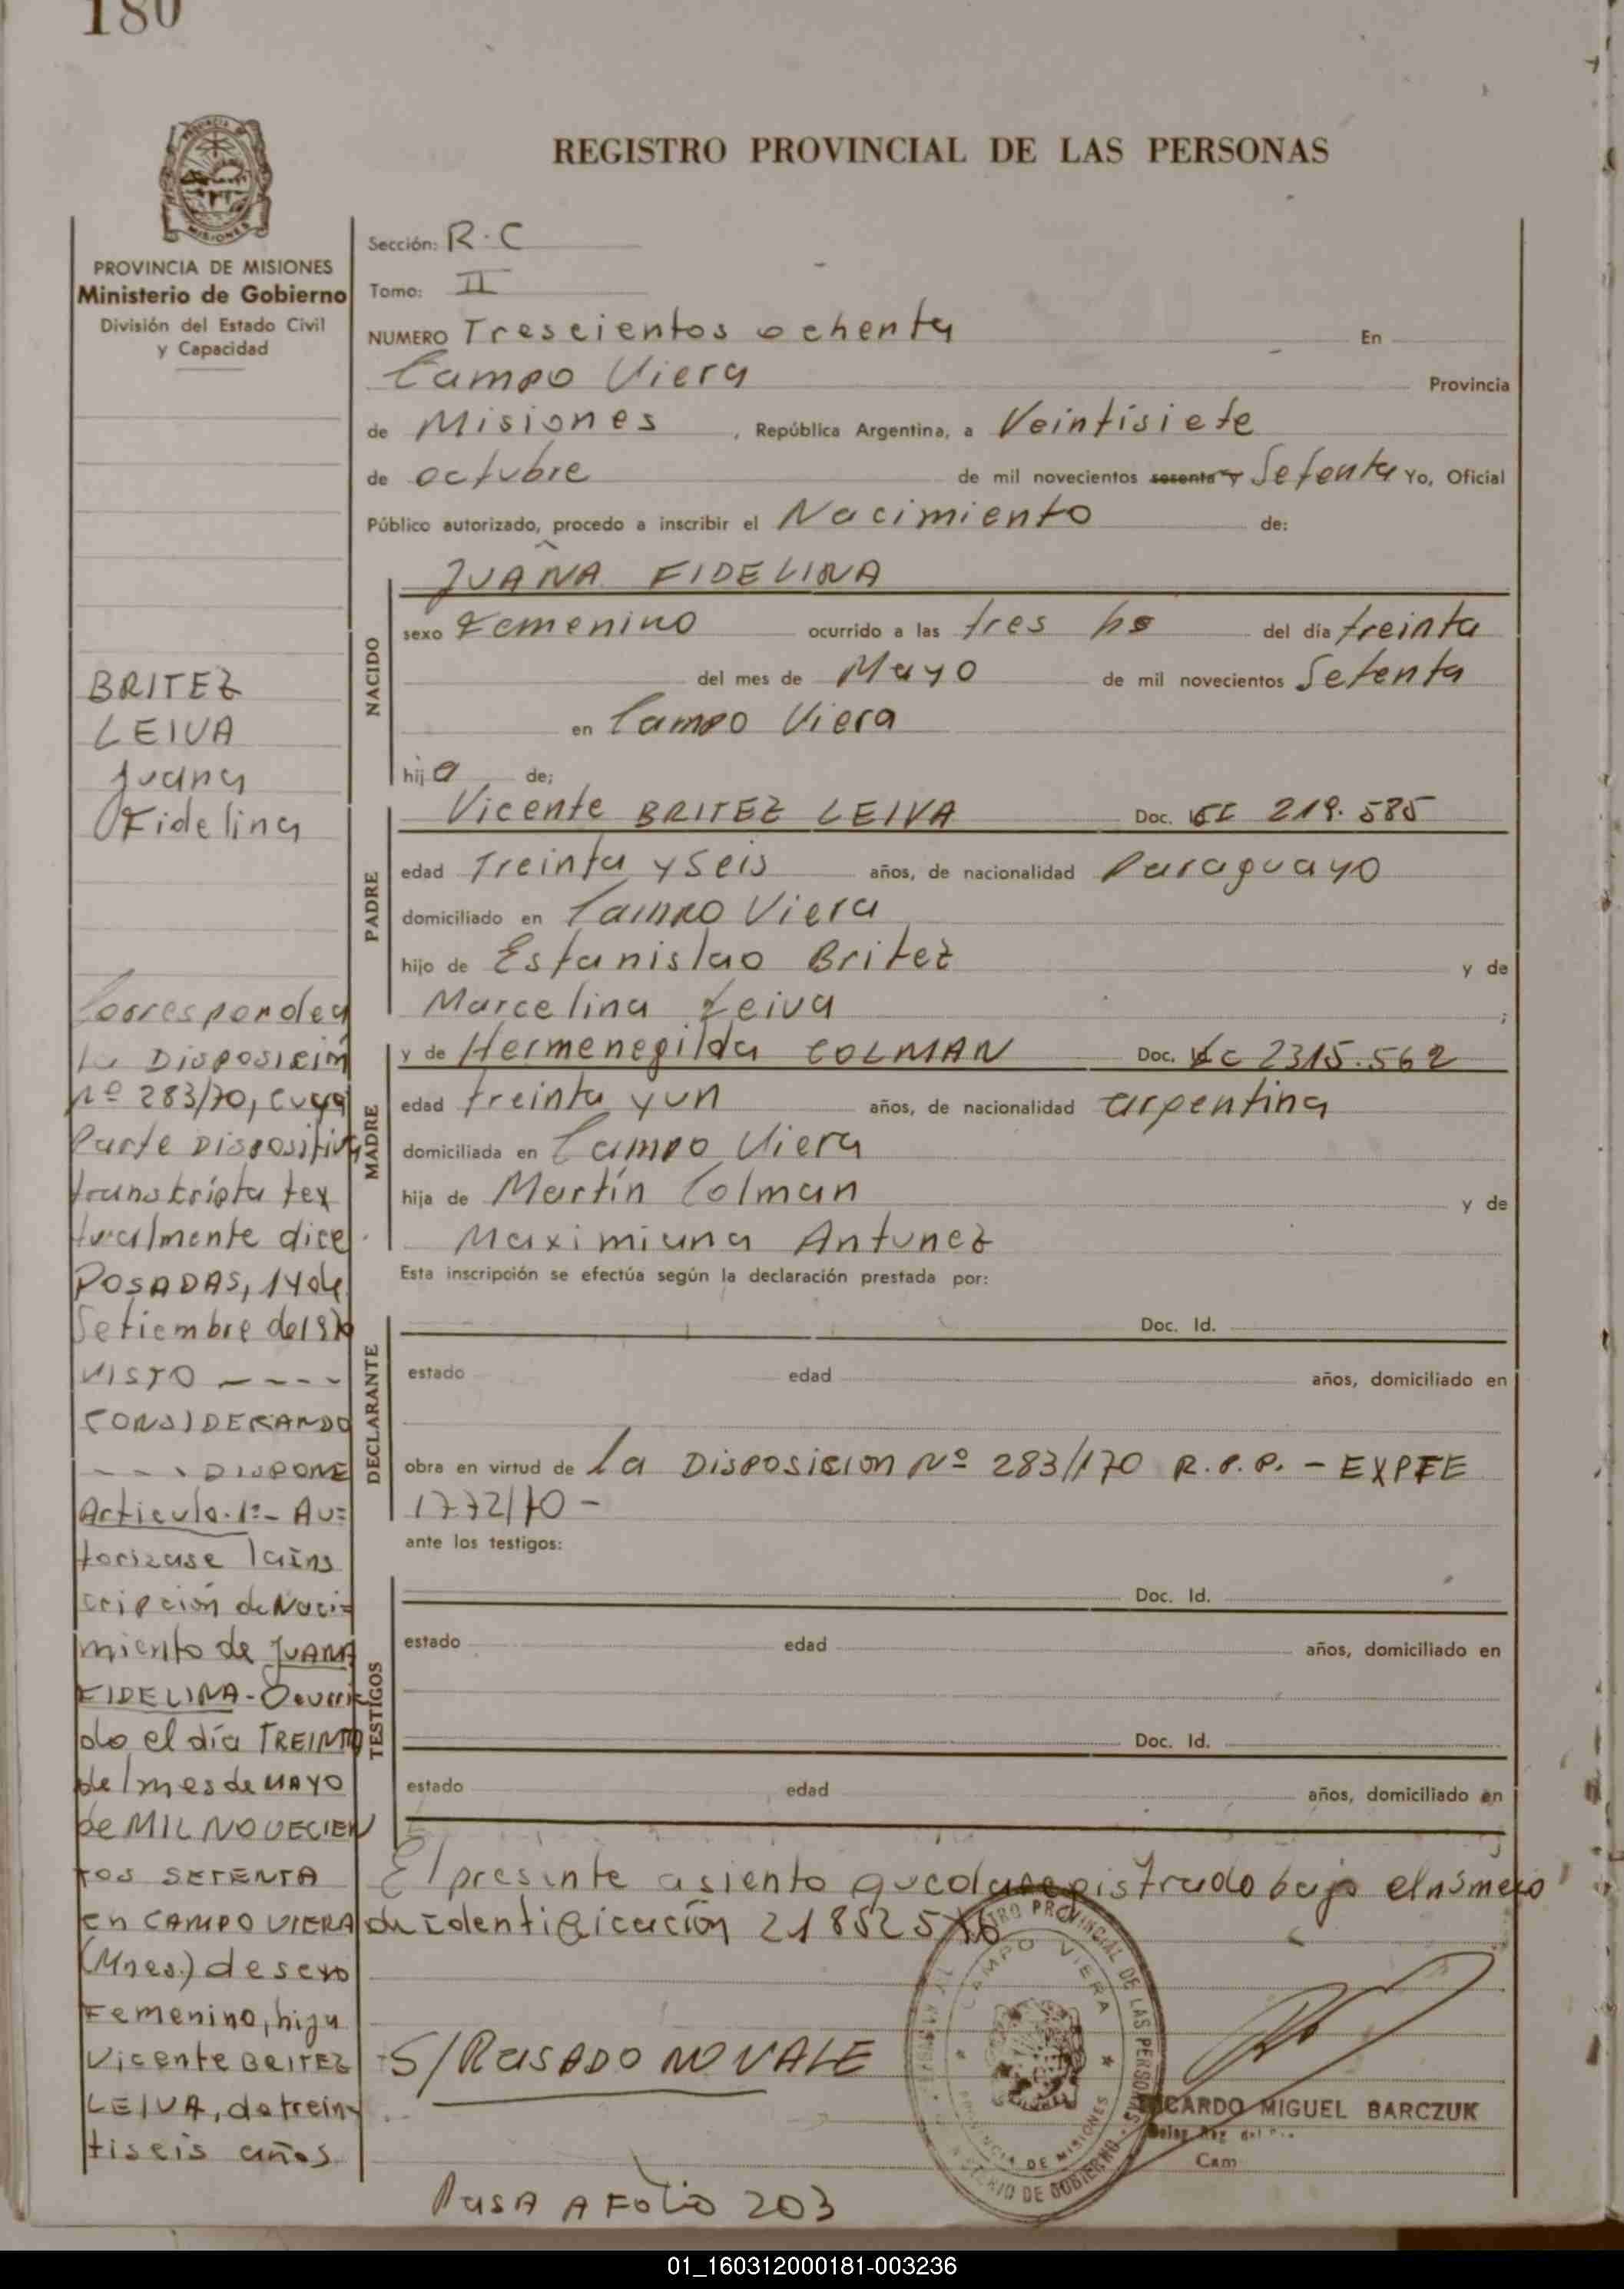 180
REGISTRO PROVINCIAL DE LAS PERSONAS
PROVINCIA DE MISIONES
Ministerio de Gobierno
División del Estado Civil
y Capacidad
BRITEZ
LEIVA
Juana
Fidelina
Corresponde a
la DISPOSICIÓN
Nº 283/70, cuya
Parte Dispositiva
transcripta tex
tualmente dice
POSADAS, 14 de
Setiembre de 1970
VISTO ----
CONSIDERANDO
---- DISPONE
Articulo. 1º- Au=
torizase la ins
cripción de Naci=
miento de JUANA
FIDELINA - Ocurri
do el día TREINTA
del mes de MAYO
de MIL NOVECIEN
TOS SETENTA
en CAMPO VIERA
(Mnes.) de sexo
Femenino, hija
Vicente BRITEZ
LEIVA, de trein-
tiseis años
Sección: R.C
Tomo: II
NUMERO Trescientos ochenta En
Campo Viera Provincia
de Misiones, República Argentina, a Veintisiete
de octubre de mil novecientos sesenta y Setenta Yo, Oficial
Público autorizado, procedo a inscribir el Nacimiento de:
NACIDO
JUANA FIDELINA
sexo Femenino ocurrido a las tres hs del día treinta
del mes de Mayo de mil novecientos Setenta
en Campo Viera
hija de;
PADRE
Vicente BRITEZ LEIVA Doc. CI 219.585
edad Treinta y Seis años, de nacionalidad Paraguayo
domiciliado en Campo Viera
hijo de Estanislao Britez y de
Marcelina Leiva ;
MADRE
y de Hermenegilda COLMAN Doc. LC 2315.562
edad treinta y un años, de nacionalidad argentina
domiciliada en Campo Viera
hija de Martín Colman y de
Maximiana Antunez
Esta inscripción se efectúa según la declaración prestada por:
DECLARANTE
Doc. Id.
estado edad años, domiciliado en
obra en virtud de la DISPOSICION Nº 283/170 R.P.P. - EXPTE
1772/70 -
ante los testigos:
TESTIGOS
Doc. Id.
estado edad años, domiciliado en
Doc. Id.
estado edad años, domiciliado en
El presente asiento queda registrado bajo el número
de identificación 21852576
S/RASADO NO VALE
REGISTRO PROVINCIAL DE LAS PERSONAS
CAMPO VIERA
PROVINCIA DE MISIONES
MINISTERIO DE GOBIERNO
RICARDO MIGUEL BARCZUK
Cam
Pasa A Folio 203
01_160312000181-003236